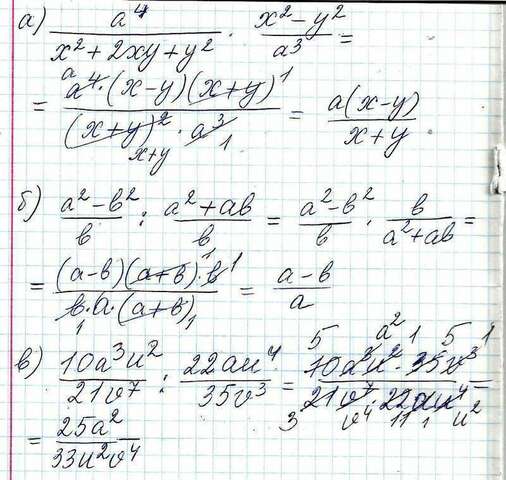 а) a⁴/(x² + 2xy + y²) · (x² − y²)/a³ =
= (a⁴ · (x − y)(x + y))/((x + y)² · a³) = a(x − y)/(x + y)
б) (a² − b²)/b : (a² + ab)/b = (a² − b²)/b · b/(a² + ab) =
= ((a − b)(a + b) · b)/(b · a · (a + b)) = (a − b)/a
в) 10a³u²/21v⁷ : 22au⁴/35v³ = (10a³u² · 35v³)/(21v⁷ · 22au⁴) =
= 25a²/33u²v⁴